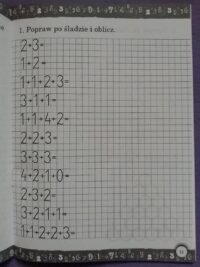 1. Popraw po śladzie i oblicz.
2+3=
1+2=
1+1+2+3=
3+1+1=
1+1+4+2=
2+2+3=
3+3+3=
4+2+1+0=
2+3+2=
3+2+1+1=
1+1+2+2+3=